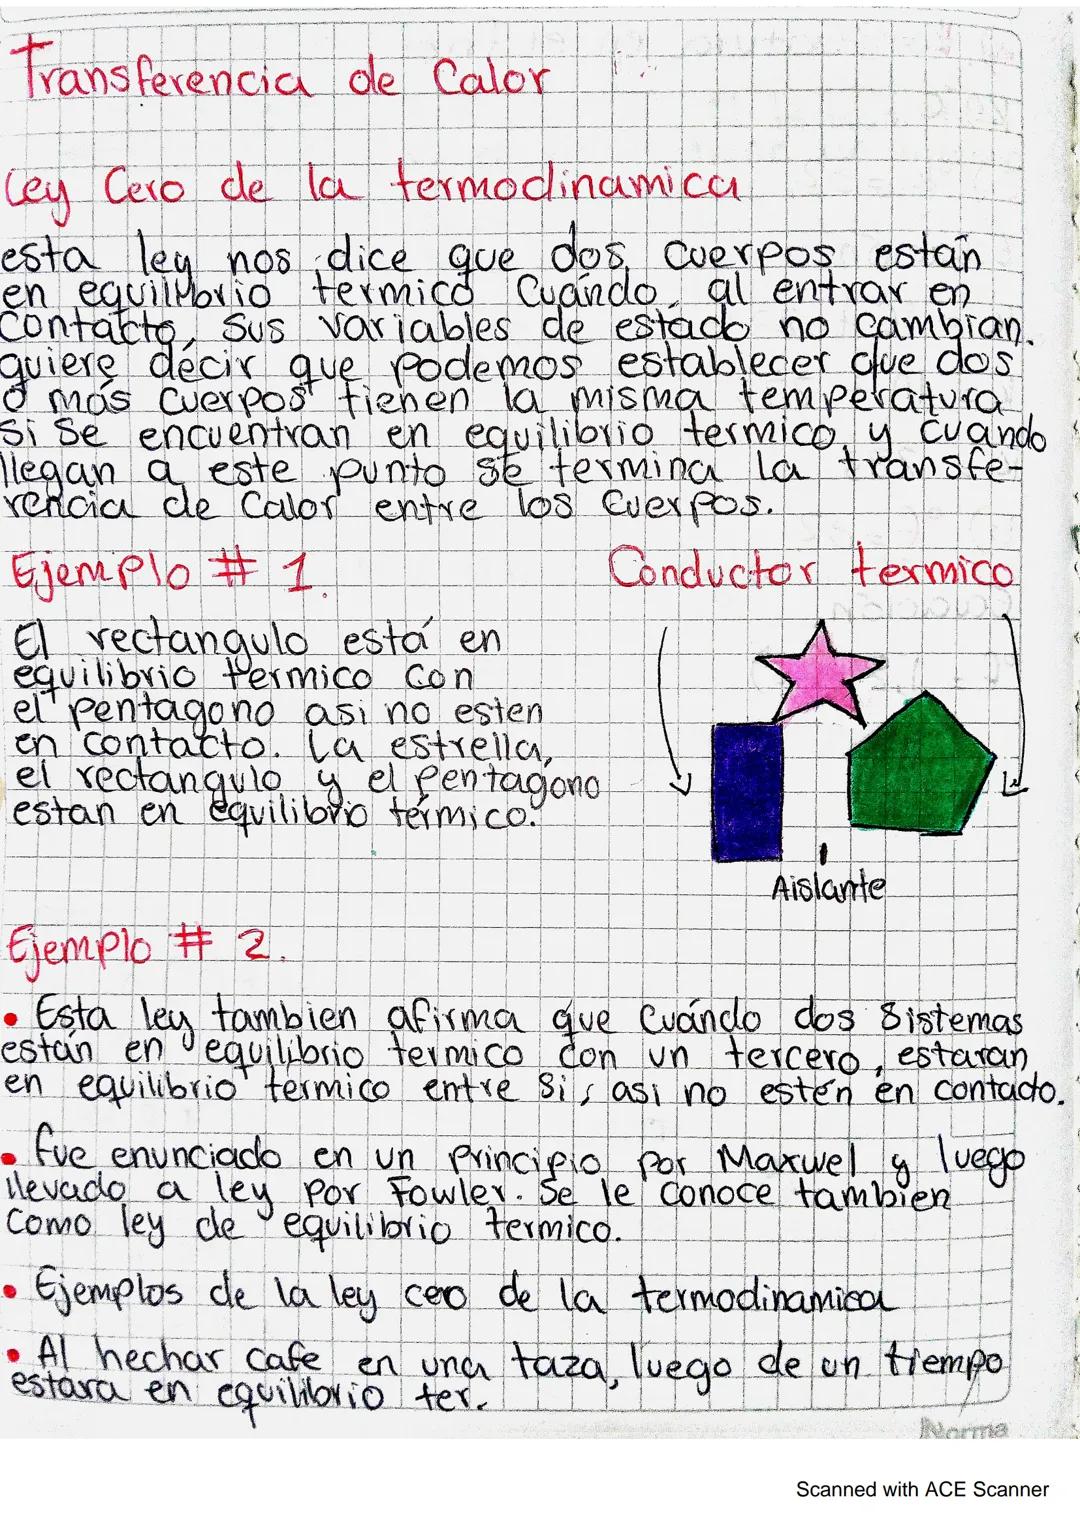 Transferencia de Calor
Ley Cero de la termodinamica
esta ley nos dice que dos cuerpos están
en equilibrio termico cuando, al entrar en
contacto, sus variables de estado no cambian.
quiere decir que podemos establecer que dos
o más cuerpos tienen la misma temperatura
si se encuentran en equilibrio termico, y cuando
llegan a este punto se termina la transfe-
rencia de calor entre los cuerpos.
Ejemplo # 1.
Conductor termico
El rectangulo está en
equilibrio termico con
el pentagono asi no esten
en contacto. La estrella,
el rectangulo y el pentagono
estan en equilibrio térmico.
Aislante
Ejemplo # 2.
• Esta ley tambien afirma que cuándo dos sistemas
están en equilibrio termico con un tercero, estaran
en equilibrio termico entre si, asi no estén en contacto.
• fue enunciado en un principio por Maxwel y luego
llevado a ley por Fowler. Se le conoce tambien
como ley de equilibrio termico.
• Ejemplos de la ley cero de la termodinamica
• Al hechar cafe en una taza, luego de un tiempo
estara en equilibrio ter.
Norma
Scanned with ACE Scanner